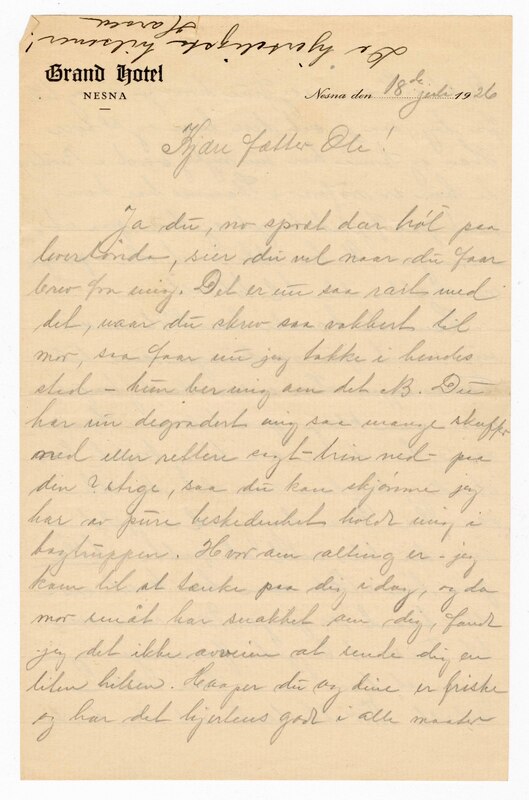 De hjerteligste hilsener!
Grand Hotel
NESNA
Nesna den 18de juli 1926
Kjære fætter Ole!
Ja du, no sprat dær höl paa
levertönda, sier du vel naar du faar
brev fra mig. Det er nu saa rart med
det, naar du skrev saa vakkert til
mor, saa faar nu jeg takke i hendes
sted – hun ber mig om det NB. Du
har nu degradert mig saa mange
ned eller rettere sagt – trin ned – paa
den ? stige, saa du kan skjønne jeg
har av pure beskedenhet holdt mig i
bagtruppen. Hvor om alting er – jeg
kom til at tænke paa dig i dag, og da
mor har snakket om dig, fandt
jeg det ikke avveien at sende dig en
liten hilsen. Haaper du og dine er friske
og har det hjertens godt i alle maater